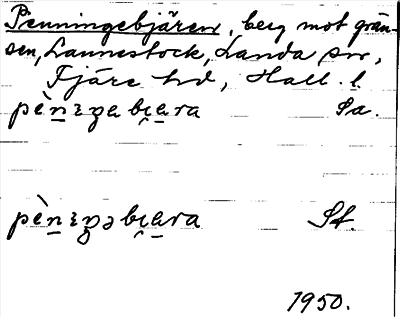 Penningebjären, berg mot grän-
sen, Lannestock, Landa sn,
Fjäre hd, Hall. l.
pènıŋabi̯ara Sa.
pènıŋəbi̯ara St.
1950.